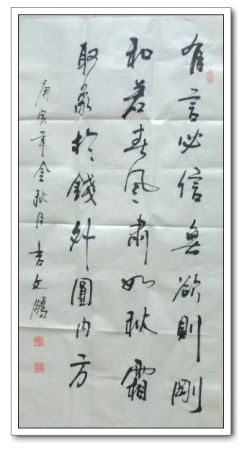 有言必信無欲則剛
和若春風肅如秋霜
取象於錢外圓内方
庚寅年金秋月文鵬